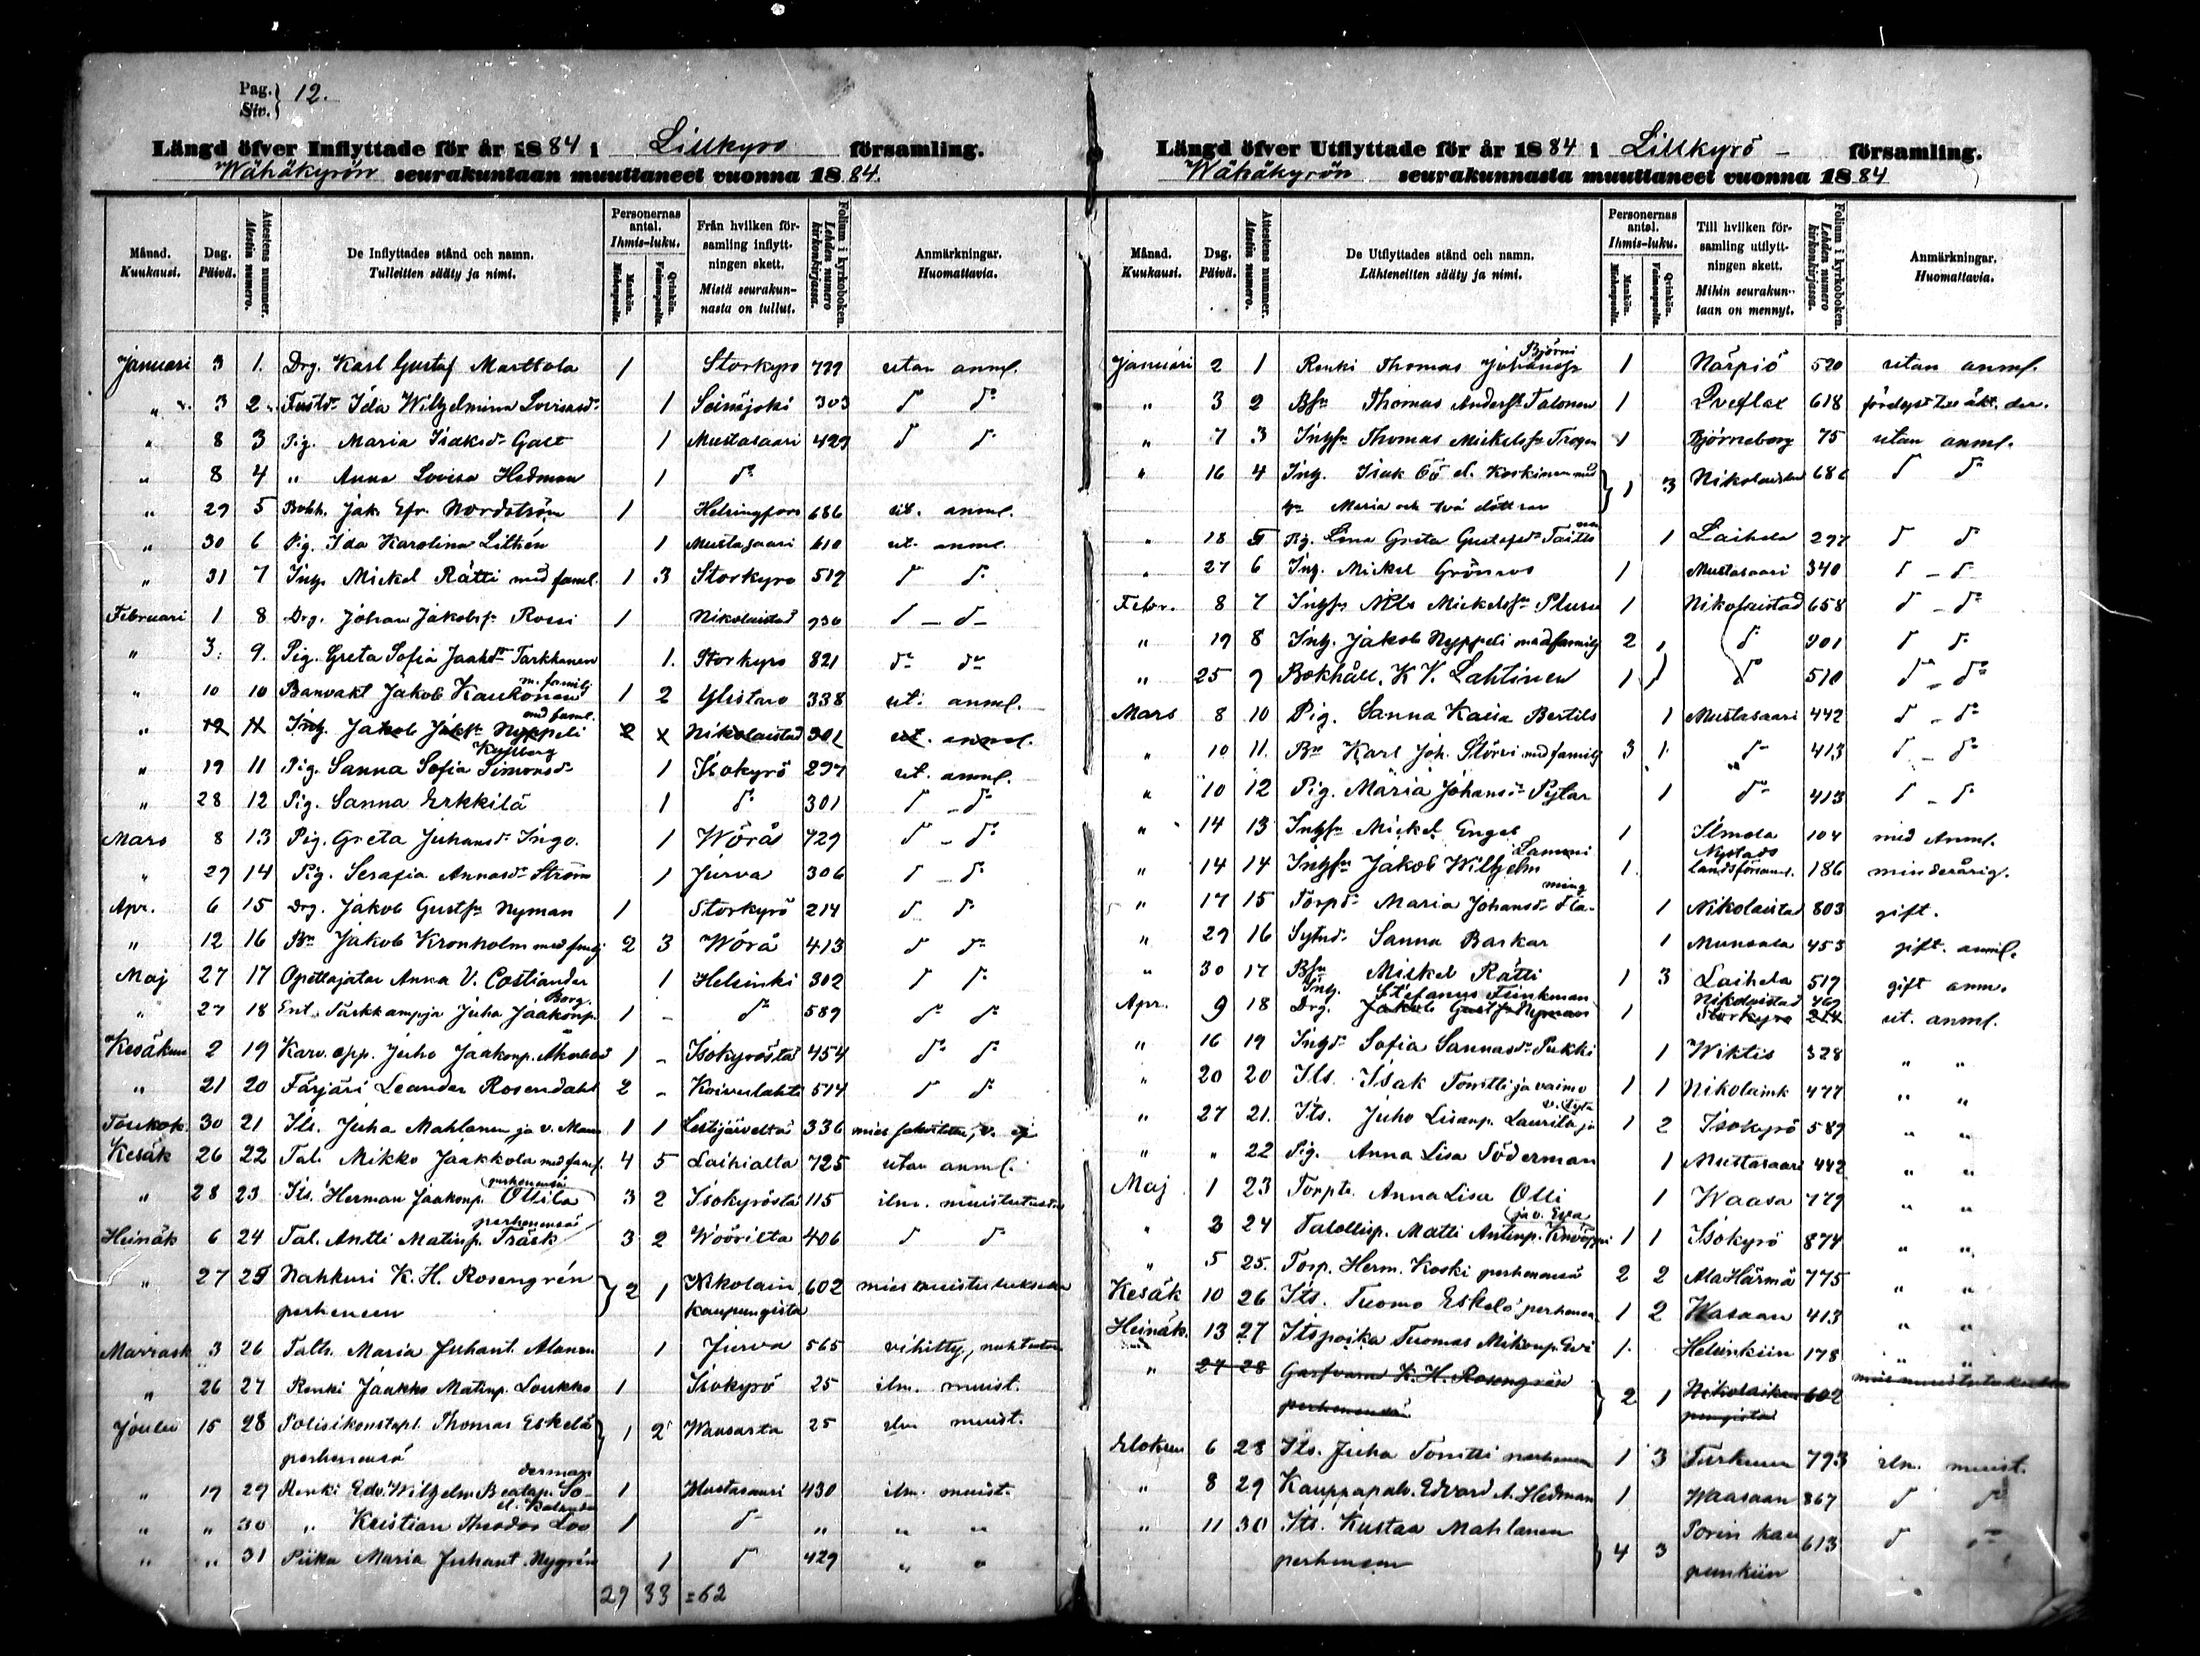 Pag. 12.
Siv.
Längd öfver Inflyttade för år 1884 i Lillkyro församling.
Wähäkyrön seurakuntaan muuttaneet vuonna 1884.
Månad. Kuukausi. Dag. Päivä. Attestens nummer. Atestin numero. De Inflyttades stånd och namn. Tulleitten sääty ja nimi. Personernas antal. Ihmis-luku. Mankön. Miehenpuolta. Qvinkön. Vaimonpuolta. Från hvilken församling inflyttningen skett. Mistä seurakunnasta on tullut. Folium i kyrkoboken. Lehden numero kirkonkirjassa. Anmärkningar. Huomattavia.
Januari 3 1. Drg. Karl Gustaf Marttola 1 Storkyro 799 utan anml.
" 3 2. Ida Wilhelmina Lovisasdr 1 Seinäjoki 303 do do
" 8 3 Pig. Maria Isaksdr Gast 1 Mustasaari 429 do do
" 8 4 " Anna Lovisa Hedman 1 do
" 29 5 Bokh. Jak. Efr. Nordström 1 Helsingfors 686 ut. anml.
" 30 6 Pig. Ida Karolina Lithén 1 Mustasaari 610 ut. anml.
" 31 7 Inhs Mickel Rätti med faml. 1 3 Storkyro 519 do do
Februari 1 8 Drg. Johan Jakobss. Rossi 1 Nikolaistad 930 do - do -
" 3. 9. Pig. Greta Sofia Jaaksdr Tarkkanen 1. Storkyro 821 do do
" 10 10 Banvakt Jakob Kaukonen m. familj 1 2 Ylistaro 338 ut. anml.
" 19 11 Inh. Jakob Jakss. Nyppeli med faml. 2 1 Nikolaistad 301 ut. anml.
" 19 11 Pig. Sanna Sofia Simonsdr Kullberg 1 Isokyrö 297 ut. anml.
" 28 12 Pig. Sanna Erkkilä 1 do 301 do - do
Mars 8 13 Pig. Greta Juhansdr Ingo. 1 Wörå 729 do - do
" 29 14 Pig. Serafia Annasdr Ström 1 Jurva 306 do - do
Apr. 6 15 Drg. Jakob Gustfss. Nyman 1 Storkyrö 214 do do
" 12 16 Bn Jakob Kronholm med familj 2 3 Wörå 413 do do
Maj 27 17 Opettajatar Anna V. Costiander 1 Helsinki 302 do do
" 27 18 Ent. Juha Jaakonp. Borg. 1 - do 589 do do
Kesäkuu 2 19 Karv. opp. Juho Jaakonp. 1 - Isokyröstä 454 do do
" 21 20 Färjäri Leander Rosendahl 2 - Koivulahti 514 do do
Toukok. 30 21 Its. Juha Mahlanen ja v. Maria 1 1 Lestijärveltä 336 mies
Kesäk 26 22 Tal. Mikko Jaakkola med famj. 4 5 Laihialta 725 utan anml.
" 28 23 Its. Herman Jaakonp. Ollila perheneensä 3 2 Isokyröstä 115 ilm. muistutusta
Heinäk 6 24 Tal. Antti Matinp. Träsk perheneensä 3 2 Wöörilta 406 do do
" 27 25 Nahkuri K. H. Rosengrén 2 1 Nikolain 602 mies muistutuksetta
perheneen kaupungista
Marrask 3 26 Talt. Maria Juhant. Alanen 1 Jurva 565 vihitty,
" 26 27 Renki Jaakko Matinp. Loukko 1 Isokyrö 25 ilm. muist.
Joulu 15 28 Polisikonstapl. Thomas Eskelä 1 2 Waasasta 25 ilm muist.
perheneensä
" 19 29 Renki Edv. Wilhelm Beatap. Söderman 1 Mustasaari 430 ilm. muist.
" " 30 " Kristian Theodor Loo 1 do " " "
" " 31 Piika Maria Juhant. Nygrén 1 do 429 " "
29 33 = 62
Längd öfver Utflyttade för år 1884 i Lillkyrö församling.
Wähäkyrön seurakunnasta muuttaneet vuonna 1884
Månad. Kuukausi. Dag. Päivä. Attestens nummer. Atestin numero. De Utflyttades stånd och namn. Lähteneitten sääty ja nimi. Personernas antal. Ihmis-luku. Mankön. Miehenpuolta. Qvinkön. Vaimonpuolta. Till hvilken församling utflyttningen skett. Mihin seurakuntaan on mennyt. Folium i kyrkoboken. Lehden numero kirkonkirjassa. Anmärkningar. Huomattavia.
Januari 2 1 Renki Thomas Johanss. Björni 1 Närpiö 520 utan anml.
" 3 2 Bss. Thomas Anderss. Talonen 1 Qveflax 618
" 7 3 Inhss. Thomas Mickelss. 1 Björneborg 75 utan anml.
" 16 4 Inh. Isak Öö el. Koskinen med 1 3 Nikolaistad 686 do do
hu Maria och två döttrar
" 18 5 Pig. Lena Greta Gustafsdr 1 Laihela 297 do do
" 27 6 Inh. Mickel Grönroos 1 Mustasaari 340 do - do
Febr. 8 7 Inhss Mickelss. 1 Nikolaistad 658 do - do
" 19 8 Inh. Jakob Nyppeli med familj 2 1 do 301 do do
" 25 9 Bokhåll. K V. Lahtinen 1 do 510 do - do
Mars 8 10 Pig. Sanna Kaisa Bertils 1 Mustasaari 442 do - do
" 10 11. Bn Karl Joh. Störvi med familj 3 1. do 413 do - do
" 10 12 Pig. Maria Johansdr Pytar 1 do 413 do - do
" 14 13 Inhss. Mickel Engel 1 Ilmola 104 med Anml.
" 14 14 Inhss. Jakob Wilhelm Lammi 1. Nystads landsförsaml. 186 minderårig.
" 17 15 Torpdr Maria Johansdr Flaming 1 Nikolaistad 803 gift.
" 29 16 Sanna Backar 1 Munsala 453 gift. anml.
" 30 17 Bss. Mickel Rätti 1 3 Laihela 519 gift anm.
Apr. 9 18 Drg. Jakob Gustfss Nyman Inh. Stefanus Finkman 1 Storkyro 214 Nikolaistad 469 ut. anml.
" 16 19 Inhdr Sofia Sannasdr Pukki 1 Wiktis 328 " "
" 20 20 Its. Isak Tomtti ja vaimo 1 1 Nikolaink 477 " "
" 27 21. Its. Juho Lisanp. Laurila ja v. 1 2 Isokyrö 589 " "
" " 22 Pig. Anna Lisa Söderman 1 Mustasaari 442 " "
Maj 1 23 Torptr. Anna Lisa Olli 1 Waasa 779 " "
" 3 24 Talollisp. Matti Antinp. ja v. Eva 1 1 Isokyrö 874 " "
" 5 25. Torp. Herm. Koski perheneensä 2 2 Ala Härmä 775 " "
Kesäk 10 26 Its. Tuomo Eskelä perheneen 1 2 Wasaan 413 " "
Heinäk. 13 27 Itspoika Tuomas Mikonp. 1. Helsinkiin 178 " "
" 27 28 Garfvaren K. H. Rosengrén 2 1 602
perheneensä
Elokuu 6 28 Its. Juha Tomtti perheneen 1 3 Turkuun 793 ilm. muist.
" 8 29 Kauppapalv. Edvard A. Hedman 1 Waasaan 867 do do
" 11 30 Its. Kustaa Mahlanen 4 3 Porin kau 613 do do
perheneen punkiin